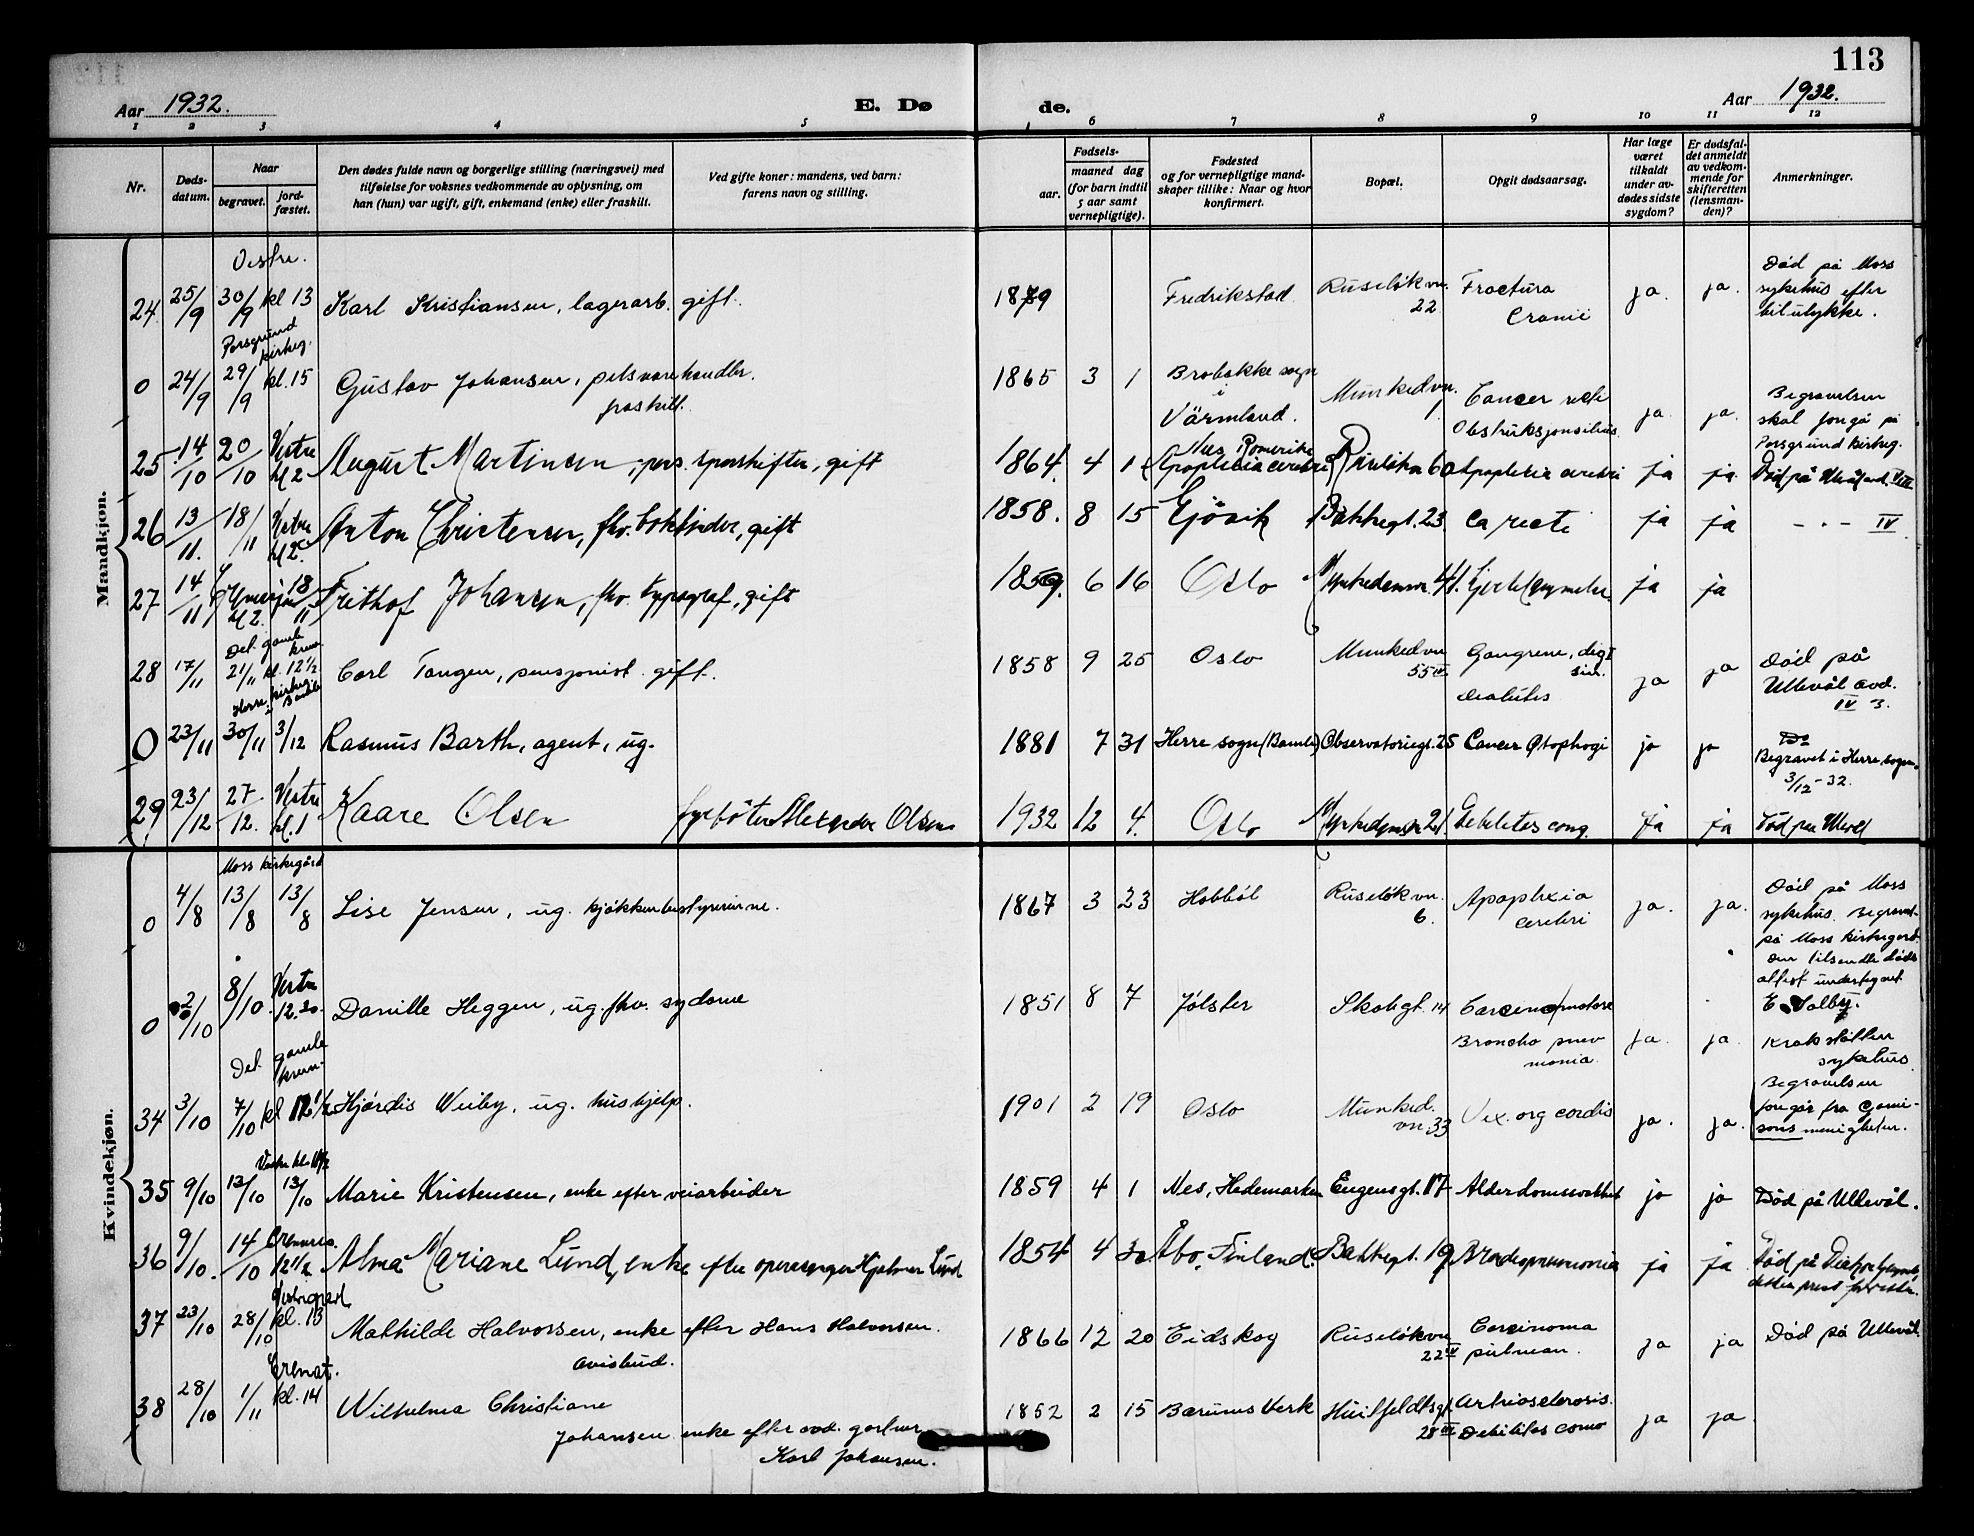 113
Aar 1932.
E. Dø
de.
Aar 1932.
1 2 3 4 5 6 7 8 9 10 11 12
Nr.
Døds-
datum.
Naar
begravet.
jord-
fæstet.
Den dødes fulde navn og borgerlige stilling (næringsvei) med
tilføielse for voksnes vedkommende av oplysning, om
han (hun) var ugift, gift, enkemand (enke) eller fraskilt.
Ved gifte koner: mandens, ved barn:
farens navn og stilling.
Fødsels-
aar.
maaned dag
(for barn indtil
5 aar samt
vernepligtige).
Fødested
og for vernepligtige mand-
skaper tillike: Naar og hvor
konfirmert.
Bopæl.
Opgit dødsaarsag.
Har læge
været
tilkaldt
under av-
dødes sidste
sygdom?
Er dødsfal-
det anmeldt
av vedkom-
mende for
skifteretten
(lensman-
den)?
Anmerkninger.
Mandkjøn.
Vestre.
24 25/9 30/9 kl 13 Karl Kristiansen, lagerarb. gift. 1879 Fredrikstad Ruseløkvn. 22 Fractura Cranii ja. ja. Død på Moss
sykehus efter
bilulykke.
Porsgrund
kirkeg.
0 24/9 29/9 kl. 15 Gustav Johansen, pelsvarehandler. fraskilt. 1865 3 1 Brobakke sogn
i
Värmland. Munkedvn. 1 Cancer recti
Obstruksjonsilius ja ja. Begravelsen
skal foregå på
Porsgrund kirkeg.
25 14/10 20/10 Vestre kl 2 August Martinsen, pens. sporskifter, gift 1864. 4 1 Nes, Romerike Ruseløkvn 60 Apoplexia cerebri ja ja Død på Ullevål avd. VIII
26 13/11. 18/11 Vestre kl 2 Anton Christensen, fhv. bokbinder, gift 1858. 8 15 Gjövik Bakkegt. 23 Ca recti ja ja - " - IV
27 14/11 kl 2. 18/11 Frithof Johansen, fhv. typograf, gift 1859. 6 16 Oslo 41. ja ja
Det gamle
krem.
28 17/11 21/11 kl. 12 1/2 Carl Tangen, pensjonist gift. 1858 9 25 Oslo Munkedvn 55 IV Gangrene, digt
sin.
diabetes ja ja Død på
Ullevål avd.
IV 3.
Herre kirkeg.
i Bamble
0 23/11 30/11 3/12 Rasmus Barth, agent, ug. 1881 7 31 Herre sogn (Bamle) Observatoriegt. 25 Cancer Øsophagi ja ja Begravet i Herre sogn.
3/12 - 32.
29 23/12 27/12. Vestre kl. 1 Kaare Olsen fyrbøter Alexander Olsen 1932 12 4. Oslo 21. Debilitas cong. ja ja Død paa Ullevål
Kvindekjøn.
Moss kirkegård
0 4/8 13/8 13/8 Lise Jensen, ug. kjøkkenbestyrerinne. 1867 3 23 Hobbøl Ruseløkvn. 6. Apoplexia
cerebri ja. ja. Død på Moss
sykehus. Begravet
på Moss kirkegård.
Den tilsendte døds
attest undertegnet
E. Solberg.
0 2/10 8/10. Vestre 12.30. Danille Heggen, ug. fhv. sydame 1851 8 7 Jølster Skolegt. 14
Broncho pneu-
monia. ja. ja. Krokstølien
sykehus
Det gamle
krem.
34 3/10 7/10 kl 12 1/2 Hjørdis Weiby, ug. hushjelp. 1901 2 19 Oslo Munked.
vn. 33 Vix. org cordis ja. ja. Begravelsen
foregår fra Garni-
sons menigheten.
Vestre kl. 11 1/2
35 9/10 13/10 13/10 Marie Kristensen, enke efter veiarbeider 1859 4 1 Nes, Hedemarken Eugensgt. 17 Alderdomssvakhet ja ja Død på Ullevål.
36 9/10. 14/10 Cremas. 12 1/2 Alma Mariane Lund, enke efter operasanger Hjalmar Lund 1854 4 30 Åbo, Finland. Bakkegt. 19 Bronchopneumonia ja ja
Vestre gravl.
37 23/10 28/10 kl. 13 Mathilde Halvorsen, enke efter Hans Halvorsen.
avisbud. 1866 12 20 Eidskog Ruseløkvn
22 IV Carcinoma
pulman. ja ja Død på Ullevål.
Cremat.
38 28/10 1/11 kl. 14 Wilhelma Christiane
Johansen enke efter avd. gartner
Karl Johansen. 1852 2 15 Bærums Verk Huitfeldtsgt.
28 III Artriosclerosis.
Debilitas ja ja